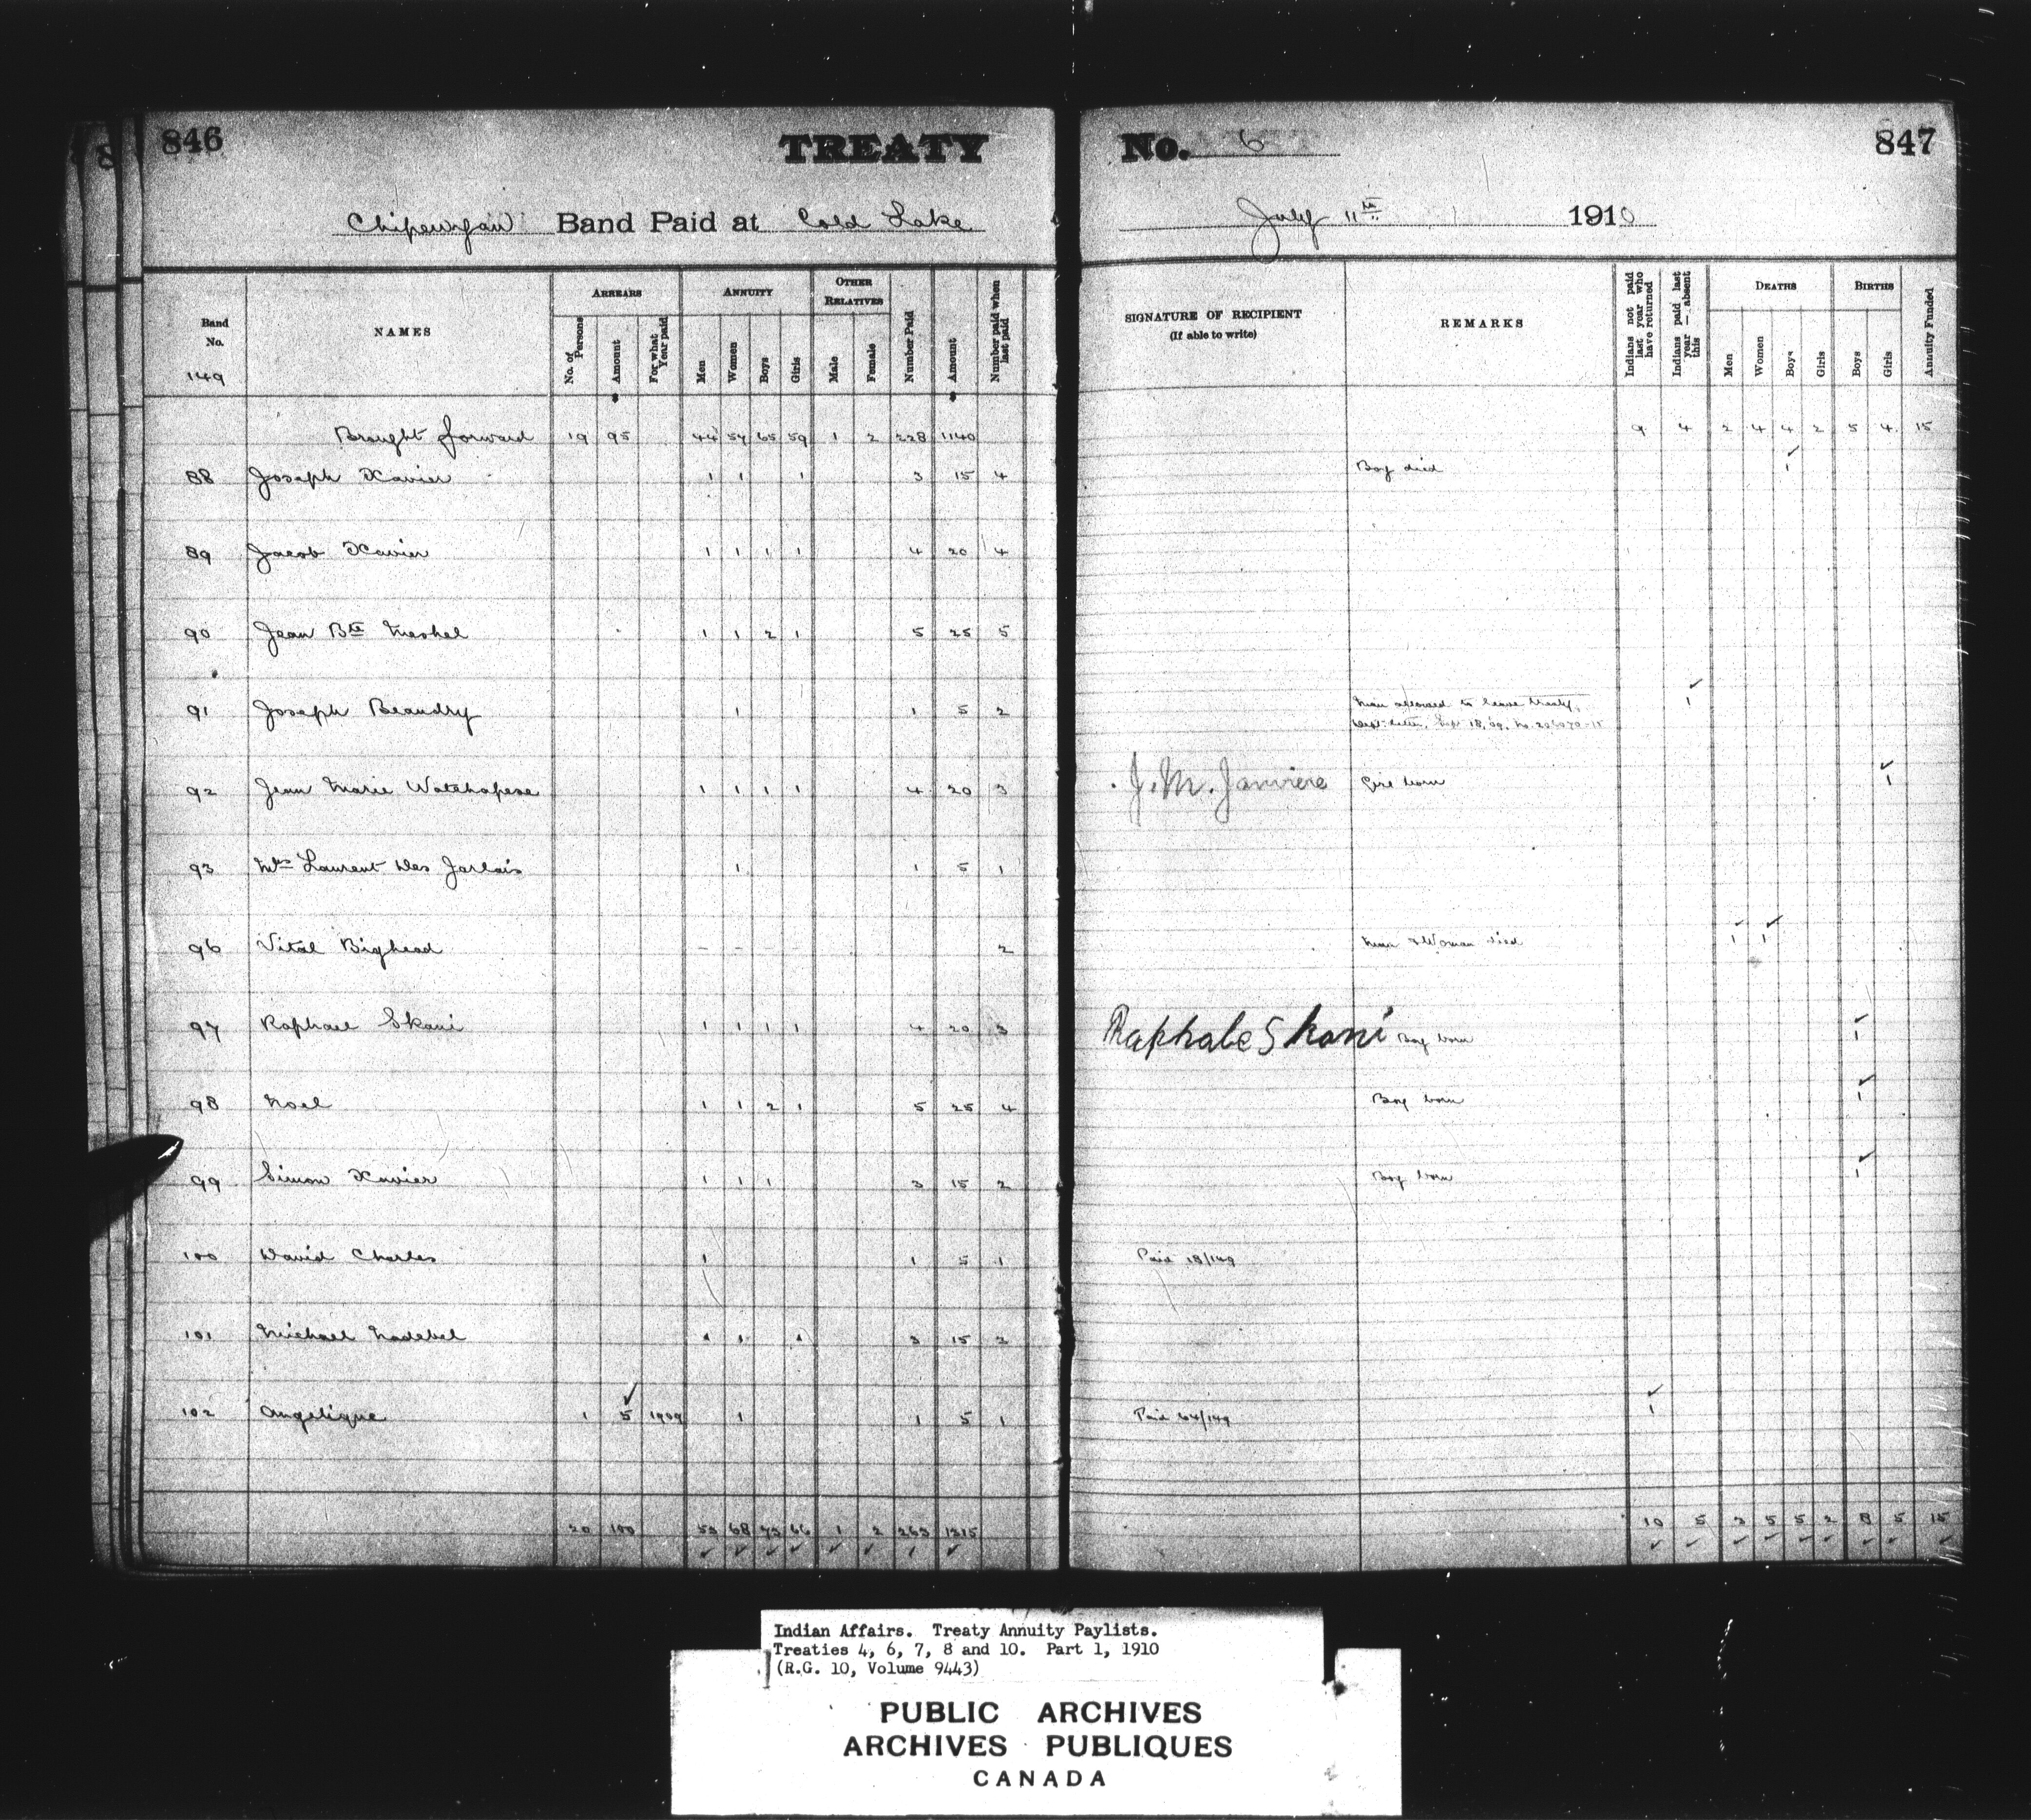 846
TREATY
No. 6
847
Chipewyan Band Paid at Cold Lake
July 11th 1910
Band No. 149
NAMES
ARREARS
No. of Persons
Amount
For what Year paid
ANNUITY
Men
Women
Boys
Girls
OTHER RELATIVES
Male
Female
Number Paid
Amount
Number paid when last paid
SIGNATURE OF RECIPIENT
(If able to write)
REMARKS
Indians not paid last year who have returned
Indians paid last year — absent this
DEATHS
Men
Women
Boys
Girls
BIRTHS
Boys
Girls
Annuity Funded
Brought forward 19 95 44 54 65 59 1 2 228 1140 9 4 2 4 4 2 5 4 15
88 Joseph Xavier 1 1 1 3 15 4 Boy died 1
89 Jacob Xavier 1 1 1 1 4 20 4
90 Jean Bte 1 1 2 1 5 25 5
91 Joseph Beaudry 1 1 5 2 Man allowed to leave treaty, 1
Dept. letter, Sept 18, 09, No.
92 Jean Marie Watchapese 1 1 1 1 4 20 3 J. M. Janviere Girl born 1
93 Mrs Laurent Des Jarlais 1 1 5 1
96 Vital Bighead - - 2 Man & Woman died 1 1
97 Raphael Skani 1 1 1 1 4 20 3 Raphale Skani Boy born 1
98 Noel 1 1 2 1 5 25 4 Boy born 1
99 Simon Xavier 1 1 1 3 15 2 Boy born 1
100 David Charles 1 1 5 1 Paid 18/149
101 Michael 1 1 1 3 15 3
102 Angelique 1 5 1909 1 1 5 1 Paid 64/149 1
20 100 53 68 73 66 1 2 263 1315 10 5 3 5 5 2 8 5 15
Indian Affairs. Treaty Annuity Paylists.
Treaties 4, 6, 7, 8 and 10. Part 1, 1910
(R.G. 10, Volume 9443)
PUBLIC ARCHIVES
ARCHIVES PUBLIQUES
CANADA